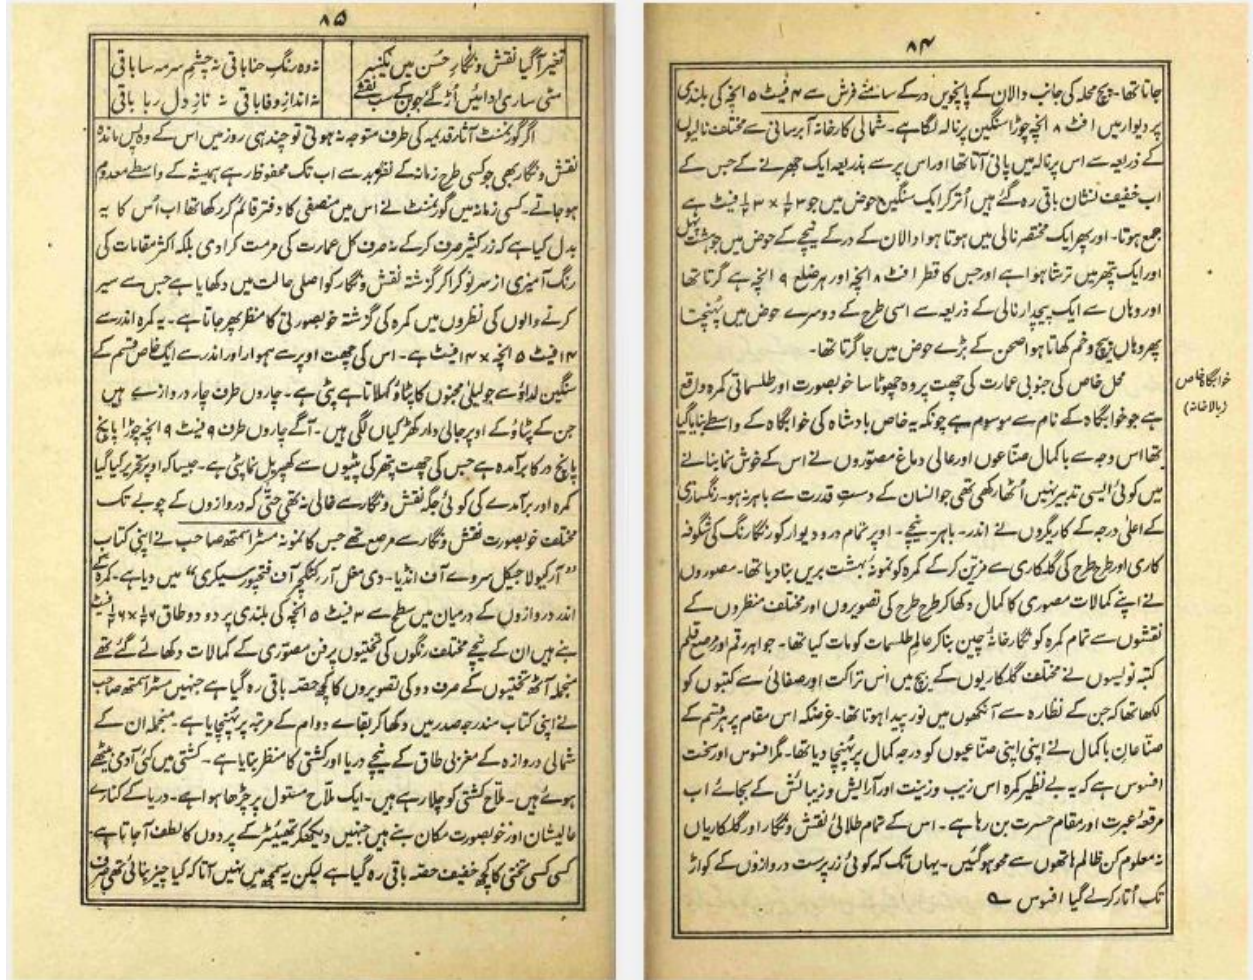 ۸۴
جاتا تھا۔ بیچ محلہ کی جانب دالان کے پانچویں در کے سامنے فرش سے ۴ فیٹ ۵ انچہ کی بلندی
پر دیوار میں ا فٹ ۸ انچہ چوڑا سنگین پرنالہ لگا ہے۔ شمالی کارخانہ آبرسانی سے مختلف نالیوں
کے ذریعہ سے اس پرنالہ میں پانی آتا تھا اور اس پر سے بذریعہ ایک جھرنے کے جس کے
اب خفیف نشان باقی رہ گئے ہیں اُتر کر ایک سنگین حوض میں جو ۳ × ۳ فیٹ ہے
جمع ہوتا۔ اور پھر ایک مختصر نالی میں ہوتا ہوا دالان کے در کے نیچے کے حوض میں جو ہشت پہل
اور ایک پتھر میں ترشا ہوا ہے اور جس کا قطر ا فٹ ۸ انچہ اور ہر ضلع ۹ انچہ ہے گرتا تھا
اور وہاں سے ایک پیچدار نالی کے ذریعہ سے اسی طرح کے دوسرے حوض میں پہُنچتا
پھر وہاں پیچ و خم کھاتا ہوا صحن کے بڑے حوض میں جا گرتا تھا۔
خوابگاہ خاص
(بالاخانہ)
محل خاص کی جنوبی عمارت کی چھت پر وہ چھوٹا سا خوبصورت اور طلسماتی کمرہ واقع
ہے جو خوابگاہ کے نام سے موسوم ہے چونکہ یہ خاص بادشاہ کی خوابگاہ کے واسطے بنایا گیا
تھا اس وجہ سے باکمال صنّاعوں اور عالی دماغ مصوّروں نے اس کے خوش نما بنانے
میں کوئی ایسی تدبیر نہیں اُٹھا رکھی تھی جو انسان کے دستِ قدرت سے باہر نہ ہو۔ رنگسازی
کے اعلیٰ درجہ کے کاریگروں نے اندر۔ باہر۔ نیچے۔ اوپر تمام در و دیوار کو رنگا رنگ کی شگوفہ
کاری اور طرح طرح کی گلکاری سے مزین کر کے کمرہ کو نمونۂ بہشت بریں بنا دیا تھا۔ مصوروں
نے اپنے کمالات مصوری کا کمال دکھا کر طرح طرح کی تصویروں اور مختلف منظروں کے
نقشوں سے تمام کمرہ کو نگارخانۂ چین بنا کر عالم طلسمات کو مات کیا تھا۔ جواہر رقم اور مرصع قلم
کتبہ نویسوں نے مختلف گلکاریوں کے بیچ میں اس نزاکت اور صفائی سے کتبوں کو
لکھا تھا کہ جن کے نظارہ سے آنکھوں میں نور پیدا ہوتا تھا۔ غرضکہ اس مقام پر ہر قسم کے
صنّاعانِ باکمال نے اپنی اپنی صنّاعیوں کو درجہ کمال پر پہُنچا دیا تھا۔ مگر افسوس اور سخت
افسوس ہے کہ یہ بے نظیر کمرہ اس زیب و زینت اور آرایش و زیبائش کے بجائے اب
مرقعۂ عبرت اور مقام حسرت بن رہا ہے۔ اس کے تمام طلائی نقش و نگار اور گلکاریاں
نہ معلوم کن ظالم ہاتھوں سے محو ہو گئیں۔ یہاں تک کہ کوئی زر پرست دروازوں کے کواڑ
تک اُتار کر لے گیا افسوس ؎
۸۵
تغیر آگیا نقش و نگارِ حُسن میں یکسر نہ وہ رنگِ حنا باقی نہ چشمِ سرمہ سا باقی
مٹی ساری ادائیں اُڑ گئے جوبن کے سب نقشے نہ اندازِ وفا باقی نہ نازِ دل ربا باقی
اگر گورنمنٹ آثار قدیمہ کی طرف متوجہ نہ ہوتی تو چند ہی روز میں اس کے وہ پس ماندہ
نقش و نگار بھی جو کسی طرح زمانہ کے نظرِ بد سے اب تک محفوظ رہے ہمیشہ کے واسطے معدوم
ہو جاتے۔ کسی زمانہ میں گورنمنٹ نے اس میں منصفی کا دفتر قائم کر رکھا تھا اب اُس کا یہ
بدل کیا ہے کہ زر کثیر صرف کر کے نہ صرف کل عمارت کی مرمت کرا دی بلکہ اکثر مقامات کی
رنگ آمیزی از سر نو کرا کر گزشتہ نقش و نگار کو اصلی حالت میں دکھایا ہے جس سے سیر
کرنے والوں کی نظروں میں کمرہ کی گزشتہ خوبصورتی کا منظر پھر جاتا ہے۔ یہ کمرہ اندر سے
۱۴ فیٹ ۵ انچہ × ۱۴ فیٹ ہے۔ اس کی چھت اوپر سے ہموار اور اندر سے ایک خاص قسم کے
سنگین لداؤ سے جو لیلیٰ مجنوں کا پٹاؤ کہلاتا ہے پٹی ہے۔ چاروں طرف چار دروازے ہیں
جن کے پٹاؤ کے اوپر جالی دار کھڑکیاں لگی ہیں۔ آگے چاروں طرف ۹ فیٹ ۹ انچہ چوڑا پانچ
پانچ در کا برآمدہ ہے جس کی چھت پتھر کی پٹیوں سے کھپریل نما پٹی ہے۔ جیسا کہ اوپر تحریر کیا گیا
کمرہ اور برآمدے کی کوئی جگہ نقش و نگار سے خالی نہ تھی حتیٰ کہ دروازوں کے چوبے تک
مختلف خوبصورت نقش و نگار سے مرصع تھے جس کا نمونہ مسٹر اسمتھ صاحب نے اپنی کتاب
”آرکیولاجیکل سروے آف انڈیا۔ دی مغل آرکٹکچر آف فتحپور سیکری“ میں دیا ہے۔ کمرہ کے
اندر دروازوں کے درمیان میں سطح سے ۳ فیٹ ۵ انچہ کی بلندی پر دو دو طاق ۶ × ۶ فیٹ
بنے ہیں ان کے نیچے مختلف رنگوں کی تختیوں پر فن مصوّری کے کمالات دکھائے گئے تھے
منجملہ آٹھ تختیوں کے صرف دو کی تصویروں کا کچھ حصہ باقی رہ گیا ہے جنہیں مسٹر اسمتھ صاحب
نے اپنی کتاب مندرجہ صدر میں دکھا کر بقاے دوام کے مرتبہ پر پہُنچایا ہے۔ منجملہ ان کے
شمالی دروازہ کے مغربی طاق کے نیچے دریا اور کشتی کا منظر بنایا ہے۔ کشتی میں کئی آدمی بیٹھے
ہوئے ہیں۔ ملّاح کشتی کو چلا رہے ہیں۔ ایک ملّاح مستول پر چڑھا ہوا ہے۔ دریا کے کنارے
عالیشان اور خوبصورت مکان بنے ہیں جنہیں دیکھکر تھیئٹر کے پردوں کا لطف آ جاتا ہے۔
کسی کسی تختی کا کچھ خفیف حصہ باقی رہ گیا ہے لیکن یہ سمجھ میں نہیں آتا کہ کیا چیز بنائی تھی صرف